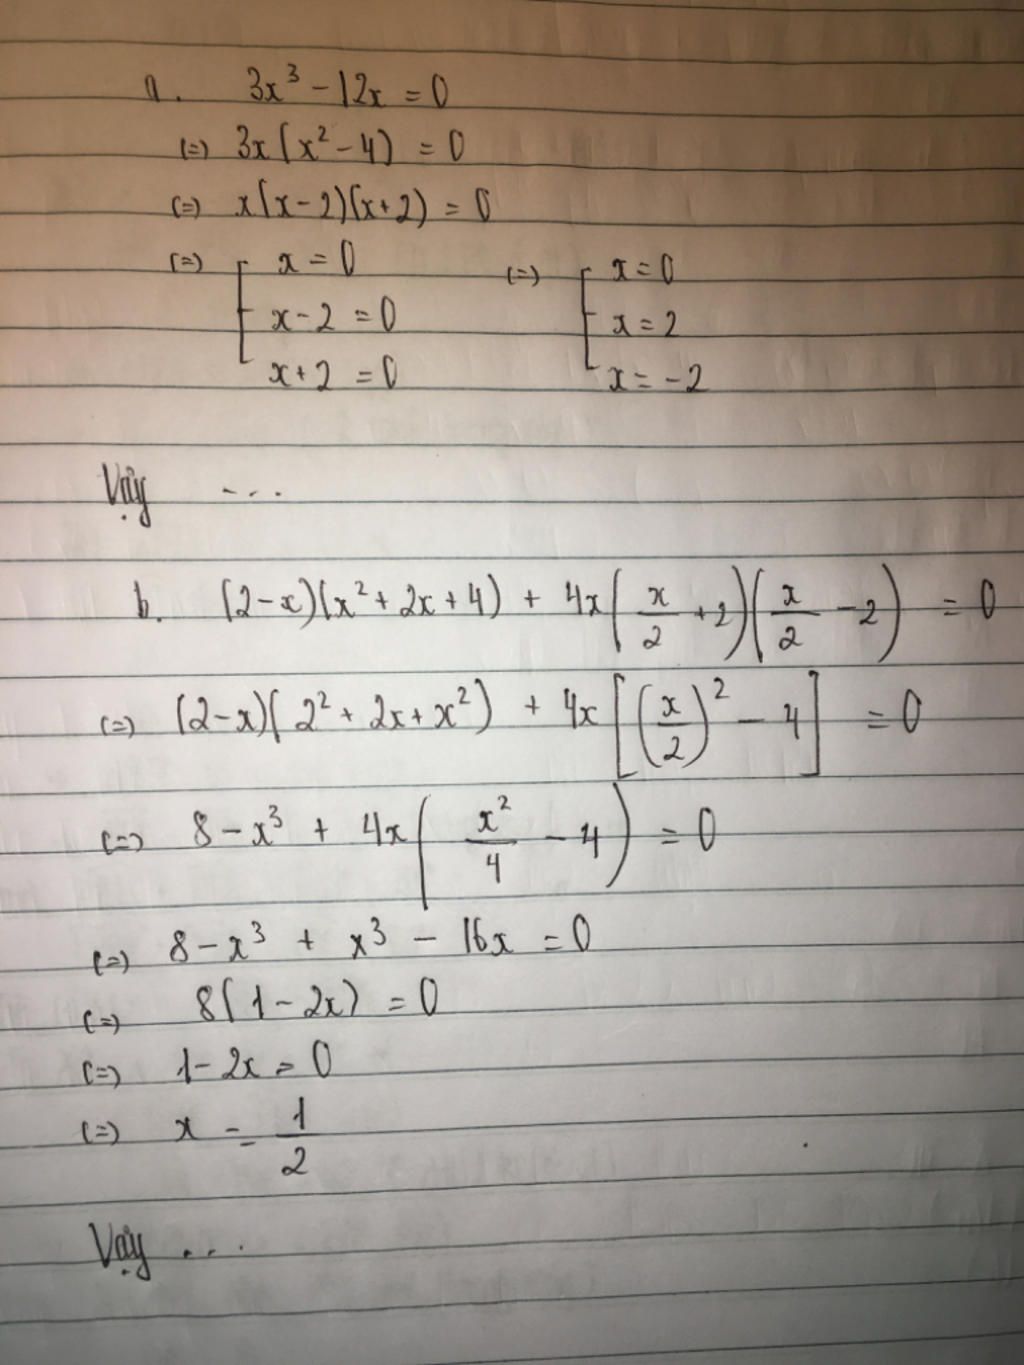 a. 3x³ - 12x = 0
(=) 3x(x² - 4) = 0
(=) x(x - 2)(x + 2) = 0
(=) [ x = 0 (=) [ x = 0
x - 2 = 0 x = 2
x + 2 = 0 x = -2
Vậy ...
b. (2 - x)(x² + 2x + 4) + 4x(x/2 + 2)(x/2 - 2) = 0
(=) (2 - x)(2² + 2x + x²) + 4x[(x/2)² - 4] = 0
(=) 8 - x³ + 4x(x²/4 - 4) = 0
(=) 8 - x³ + x³ - 16x = 0
(=) 8(1 - 2x) = 0
(=) 1 - 2x = 0
(=) x = 1/2
Vậy ...